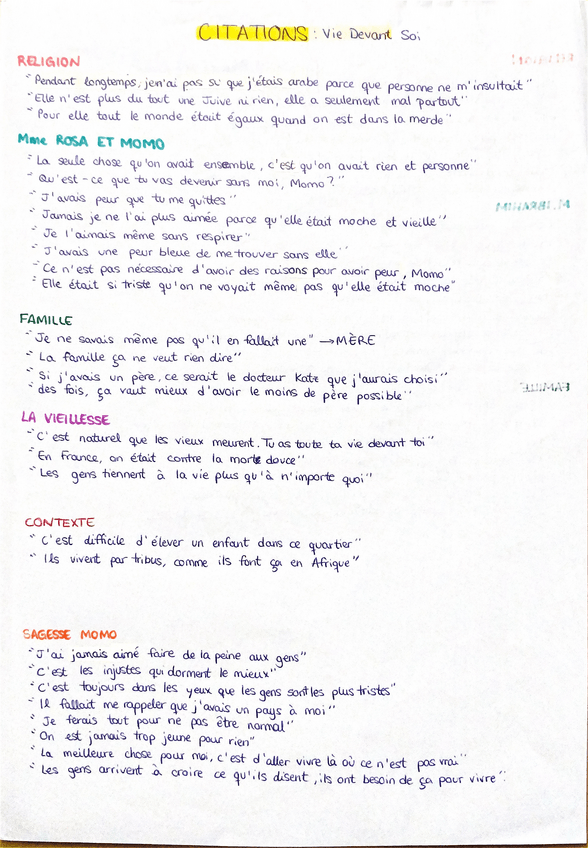 CITATIONS : Vie Devant Soi
RELIGION
"Pendant longtemps, je n'ai pas su que j'étais arabe parce que personne ne m'insultait"
"Elle n'est plus du tout une Juive ni rien, elle a seulement mal partout"
"Pour elle tout le monde était égaux quand on est dans la merde"
Mme ROSA ET MOMO
"La seule chose qu'on avait ensemble, c'est qu'on avait rien et personne"
"Qu'est-ce que tu vas devenir sans moi, Momo?"
"J'avais peur que tu me quittes"
"Jamais je ne l'ai plus aimée parce qu'elle était moche et vieille"
"Je l'aimais même sans respirer"
"J'avais une peur bleue de me trouver sans elle"
"Ce n'est pas nécessaire d'avoir des raisons pour avoir peur, Momo"
"Elle était si triste qu'on ne voyait même pas qu'elle était moche"
FAMILLE
"Je ne savais même pas qu'il en fallait une" → MÈRE
"La famille ça ne veut rien dire"
"Si j'avais un père, ce serait le docteur Katz que j'aurais choisi"
"des fois, ça vaut mieux d'avoir le moins de père possible"
LA VIEILLESSE
"C'est naturel que les vieux meurent. Tu as toute ta vie devant toi"
"En France, on était contre la mort douce"
"Les gens tiennent à la vie plus qu'à n'importe quoi"
CONTEXTE
"C'est difficile d'élever un enfant dans ce quartier"
"Ils vivent par tribus, comme ils font ça en Afrique"
SAGESSE MOMO
"J'ai jamais aimé faire de la peine aux gens"
"C'est les injustes qui dorment le mieux"
"C'est toujours dans les yeux que les gens sont les plus tristes"
"Il fallait me rappeler que j'avais un pays à moi"
"Je ferais tout pour ne pas être normal"
"On est jamais trop jeune pour rien"
"La meilleure chose pour moi, c'est d'aller vivre là où ce n'est pas vrai"
"Les gens arrivent à croire ce qu'ils disent, ils ont besoin de ça pour vivre".